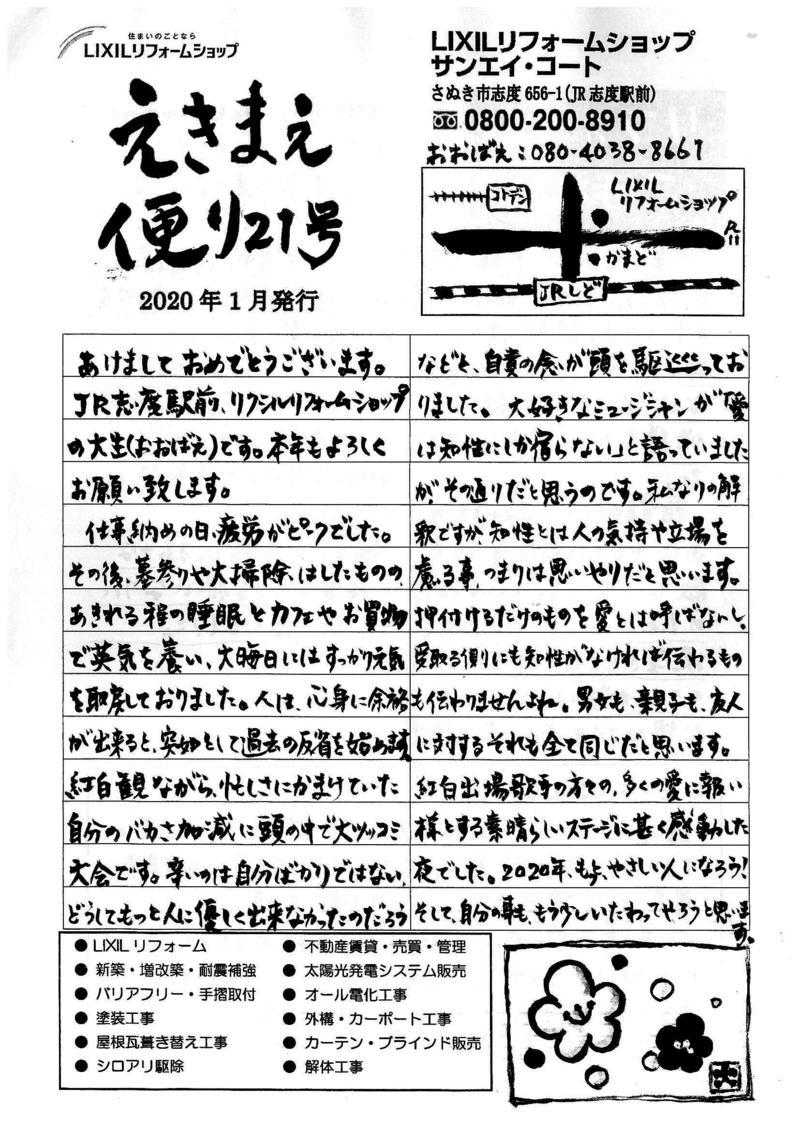 住まいのことなら
LIXILリフォームショップ
えきまえ
便り21号
2020年1月発行
LIXILリフォームショップ
サンエイ・コート
さぬき市志度656-1(JR志度駅前)
0800-200-8910
おおばえ:080-4038-8661
コトデン
LIXIL
リフォームショップ
R11
かまど
JRしど
あけましておめでとうございます。
JR志度駅前、リクシルリフォームショップ
の大生(おおばえ)です。本年もよろしく
お願い致します。
仕事納めの日、疲労がピークでした。
その後、墓参りや大掃除、はしたものの、
あきれる程の睡眠とカフェやお買物
で英気を養い、大晦日にはすっかり元気
を取戻しておりました。人は、心身に余裕
が出来ると、突如として過去の反省を始めます
紅白観ながら、忙しさにかまけていた
自分のバカさ加減に頭の中で大ツッコミ
大会です。辛いのは自分ばかりではない、
どうしてもっと人に優しく出来なかったのだろう
などと、自責の念が頭を駆巡ってお
りました。大好きなミュージシャンが「愛
は知性にしか宿らない」と語っていました
が、その通りだと思うのです。私なりの解
釈ですが、知性とは人の気持や立場を
慮る事、つまりは思いやりだと思います。
押付けるだけのものを愛とは呼ばないし、
受取る側にも知性がなければ伝わるもの
も伝わりませんよね。男女も、親子も、友人
に対するそれも全て同じだと思います。
紅白出場歌手の方々の、多くの愛に報い
様とする素晴らしいステージに甚く感動した
夜でした。2020年、もっと、やさしい人になろう!
そして、自分の事も、もう少しいたわってやろうと思います。
● LIXILリフォーム
● 新築・増改築・耐震補強
● バリアフリー・手摺取付
● 塗装工事
● 屋根瓦葺き替え工事
● シロアリ駆除
● 不動産賃貸・売買・管理
● 太陽光発電システム販売
● オール電化工事
● 外構・カーポート工事
● カーテン・ブラインド販売
● 解体工事
大